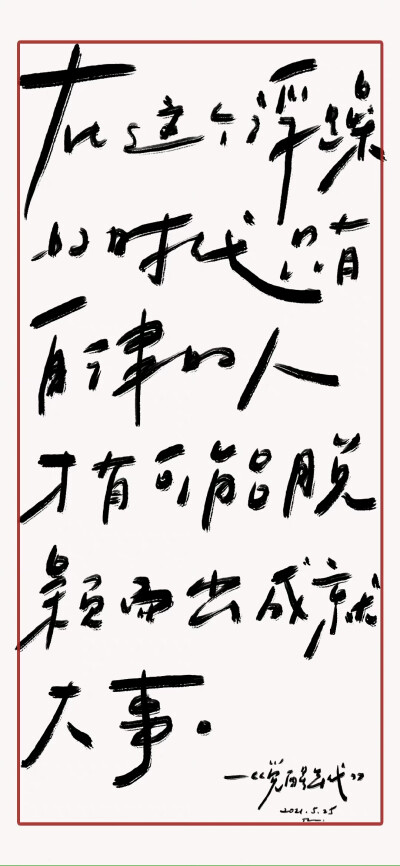 在这个浮躁
的时代只有
自律的人
才有可能脱
颖而出成就
大事.
—《觉醒年代》
2021.5.25